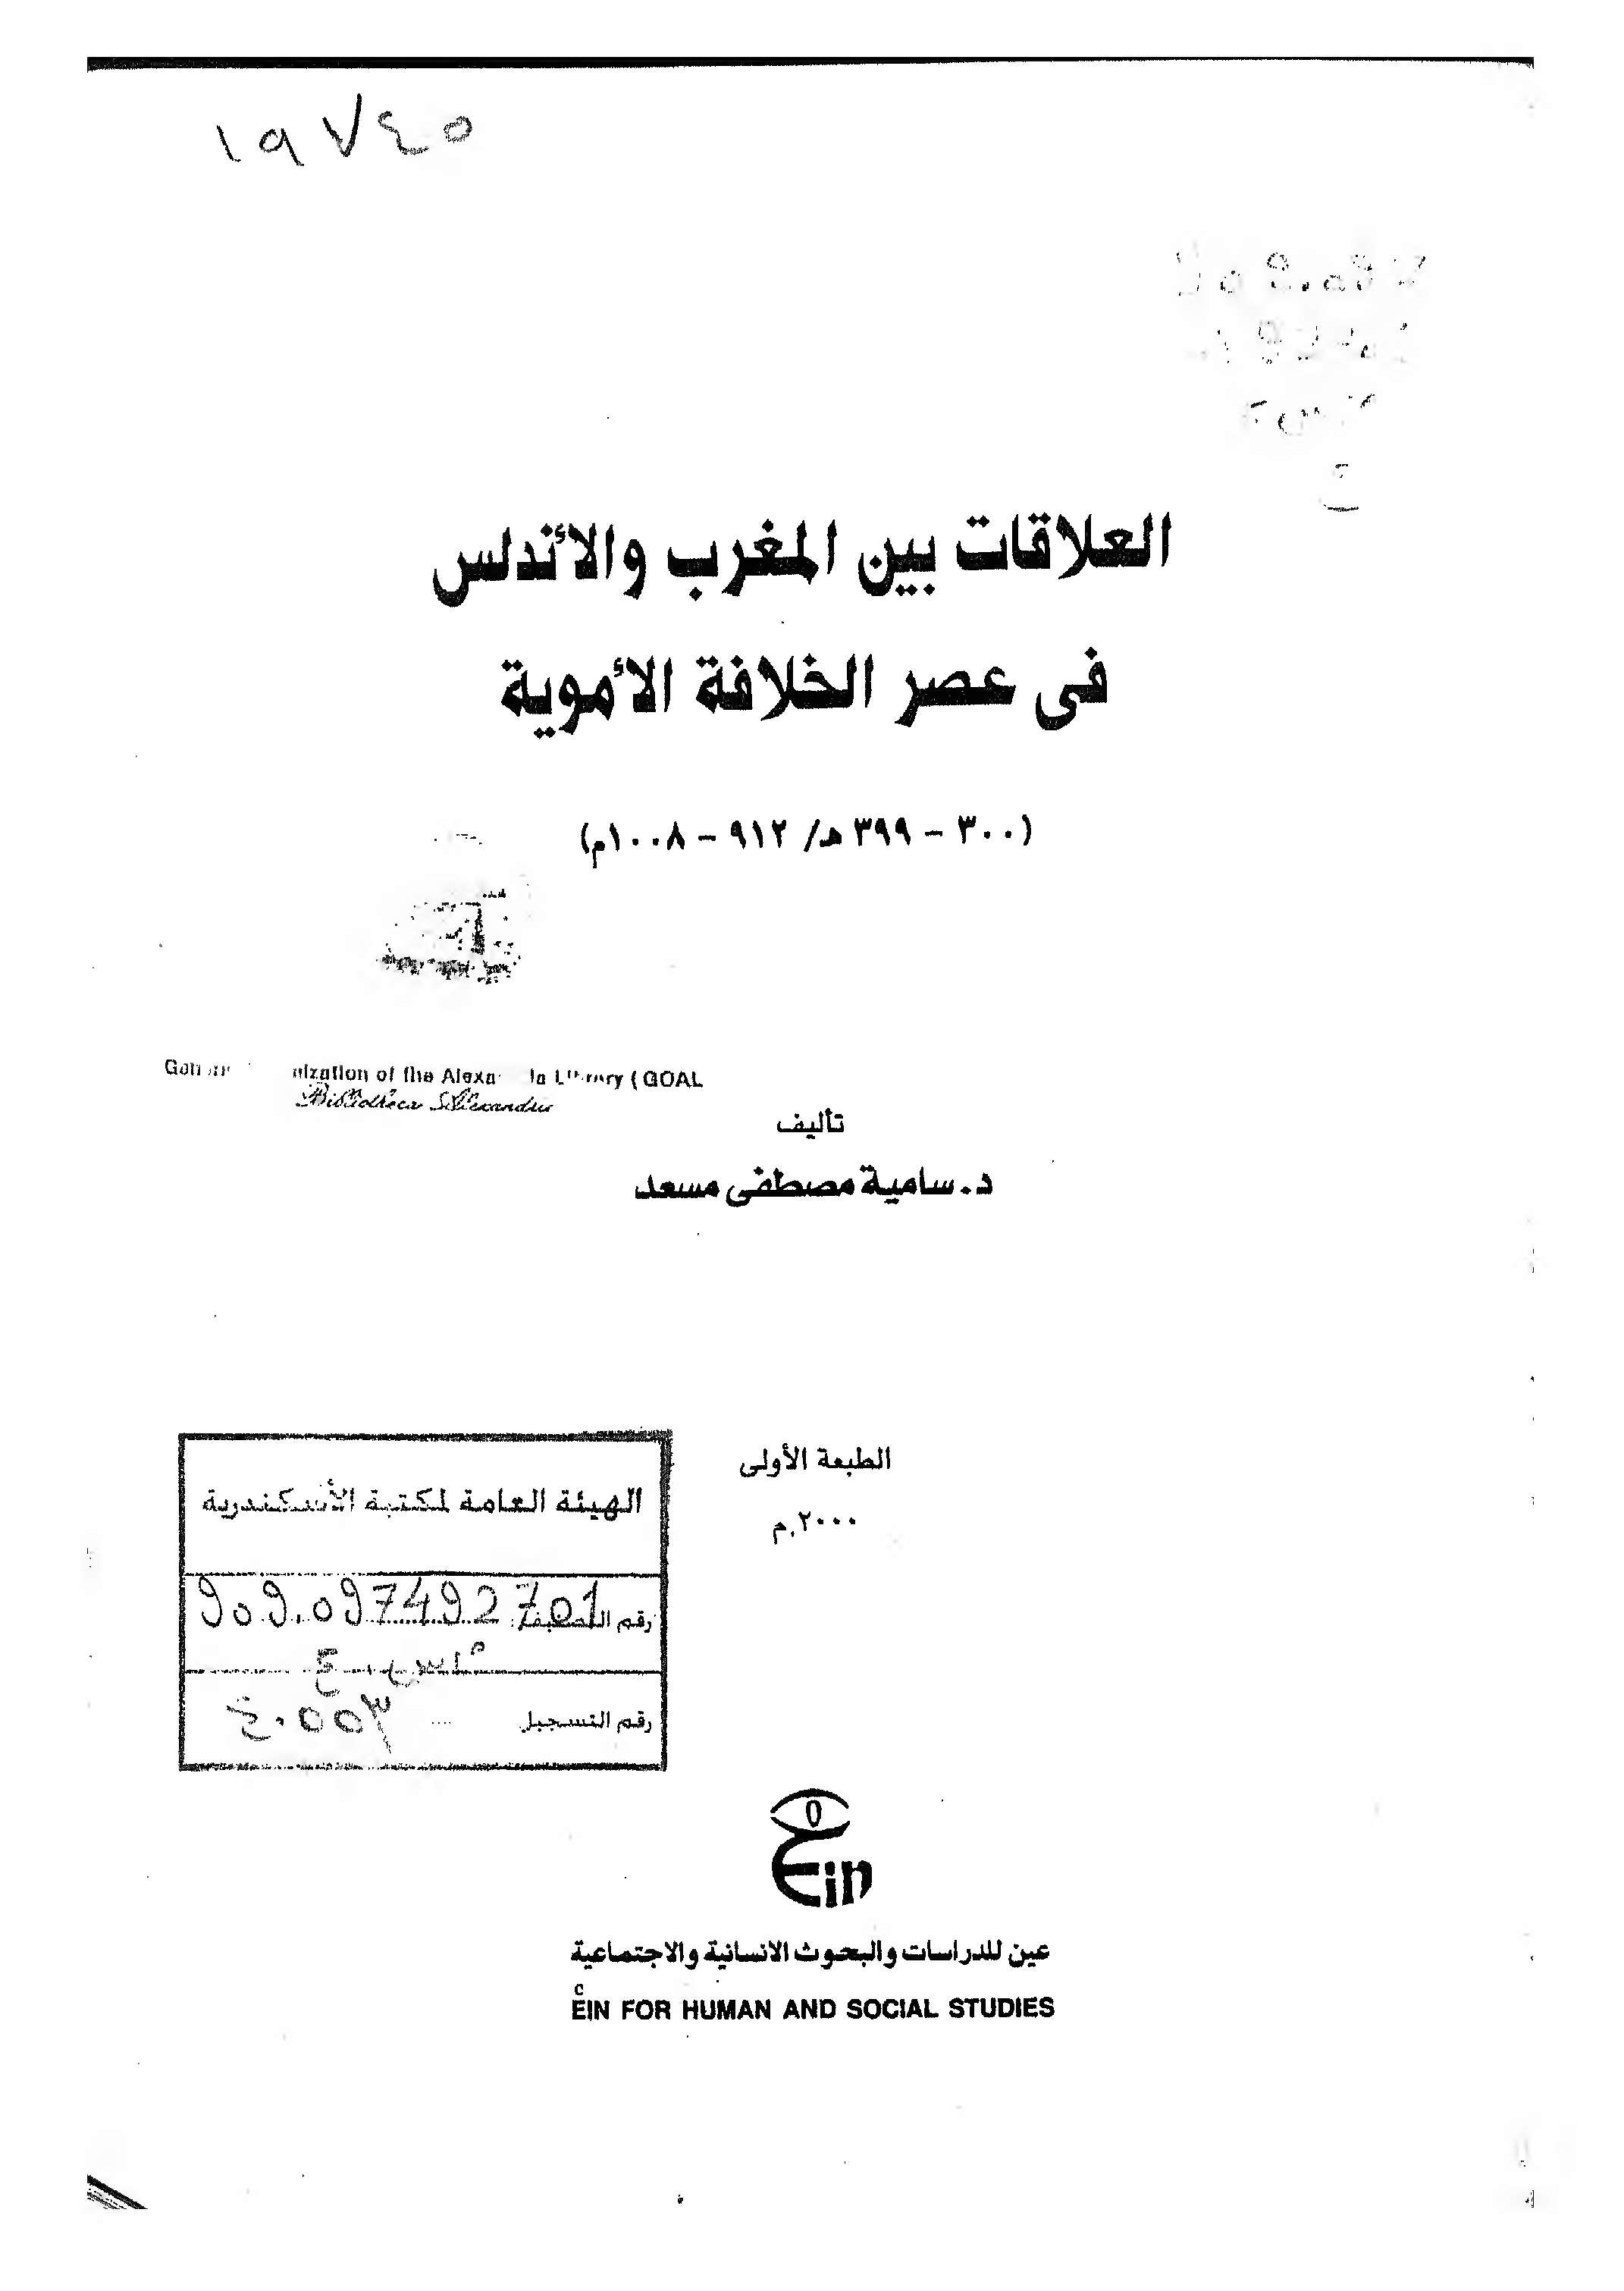 ١٩٧٤٥
العلاقات بين المغرب والأندلس
فى عصر الخلافة الأموية
(٣٠٠ - ٣٩٩ هـ/ ٩١٢ - ١٠٠٨م)
nization of the Alexa Library (GOAL
Bibliotheca Alexandri
تأليف
د. سامية مصطفى مسعد
الطبعة الأولى
٢٠٠٠م
الهيئة العامة لمكتبة الأسكندرية
رقم التصنيف 909.097492701
رقم التسجيل ٤٠٥٥٣
Ein
عين للدراسات والبحوث الانسانية والاجتماعية
EIN FOR HUMAN AND SOCIAL STUDIES